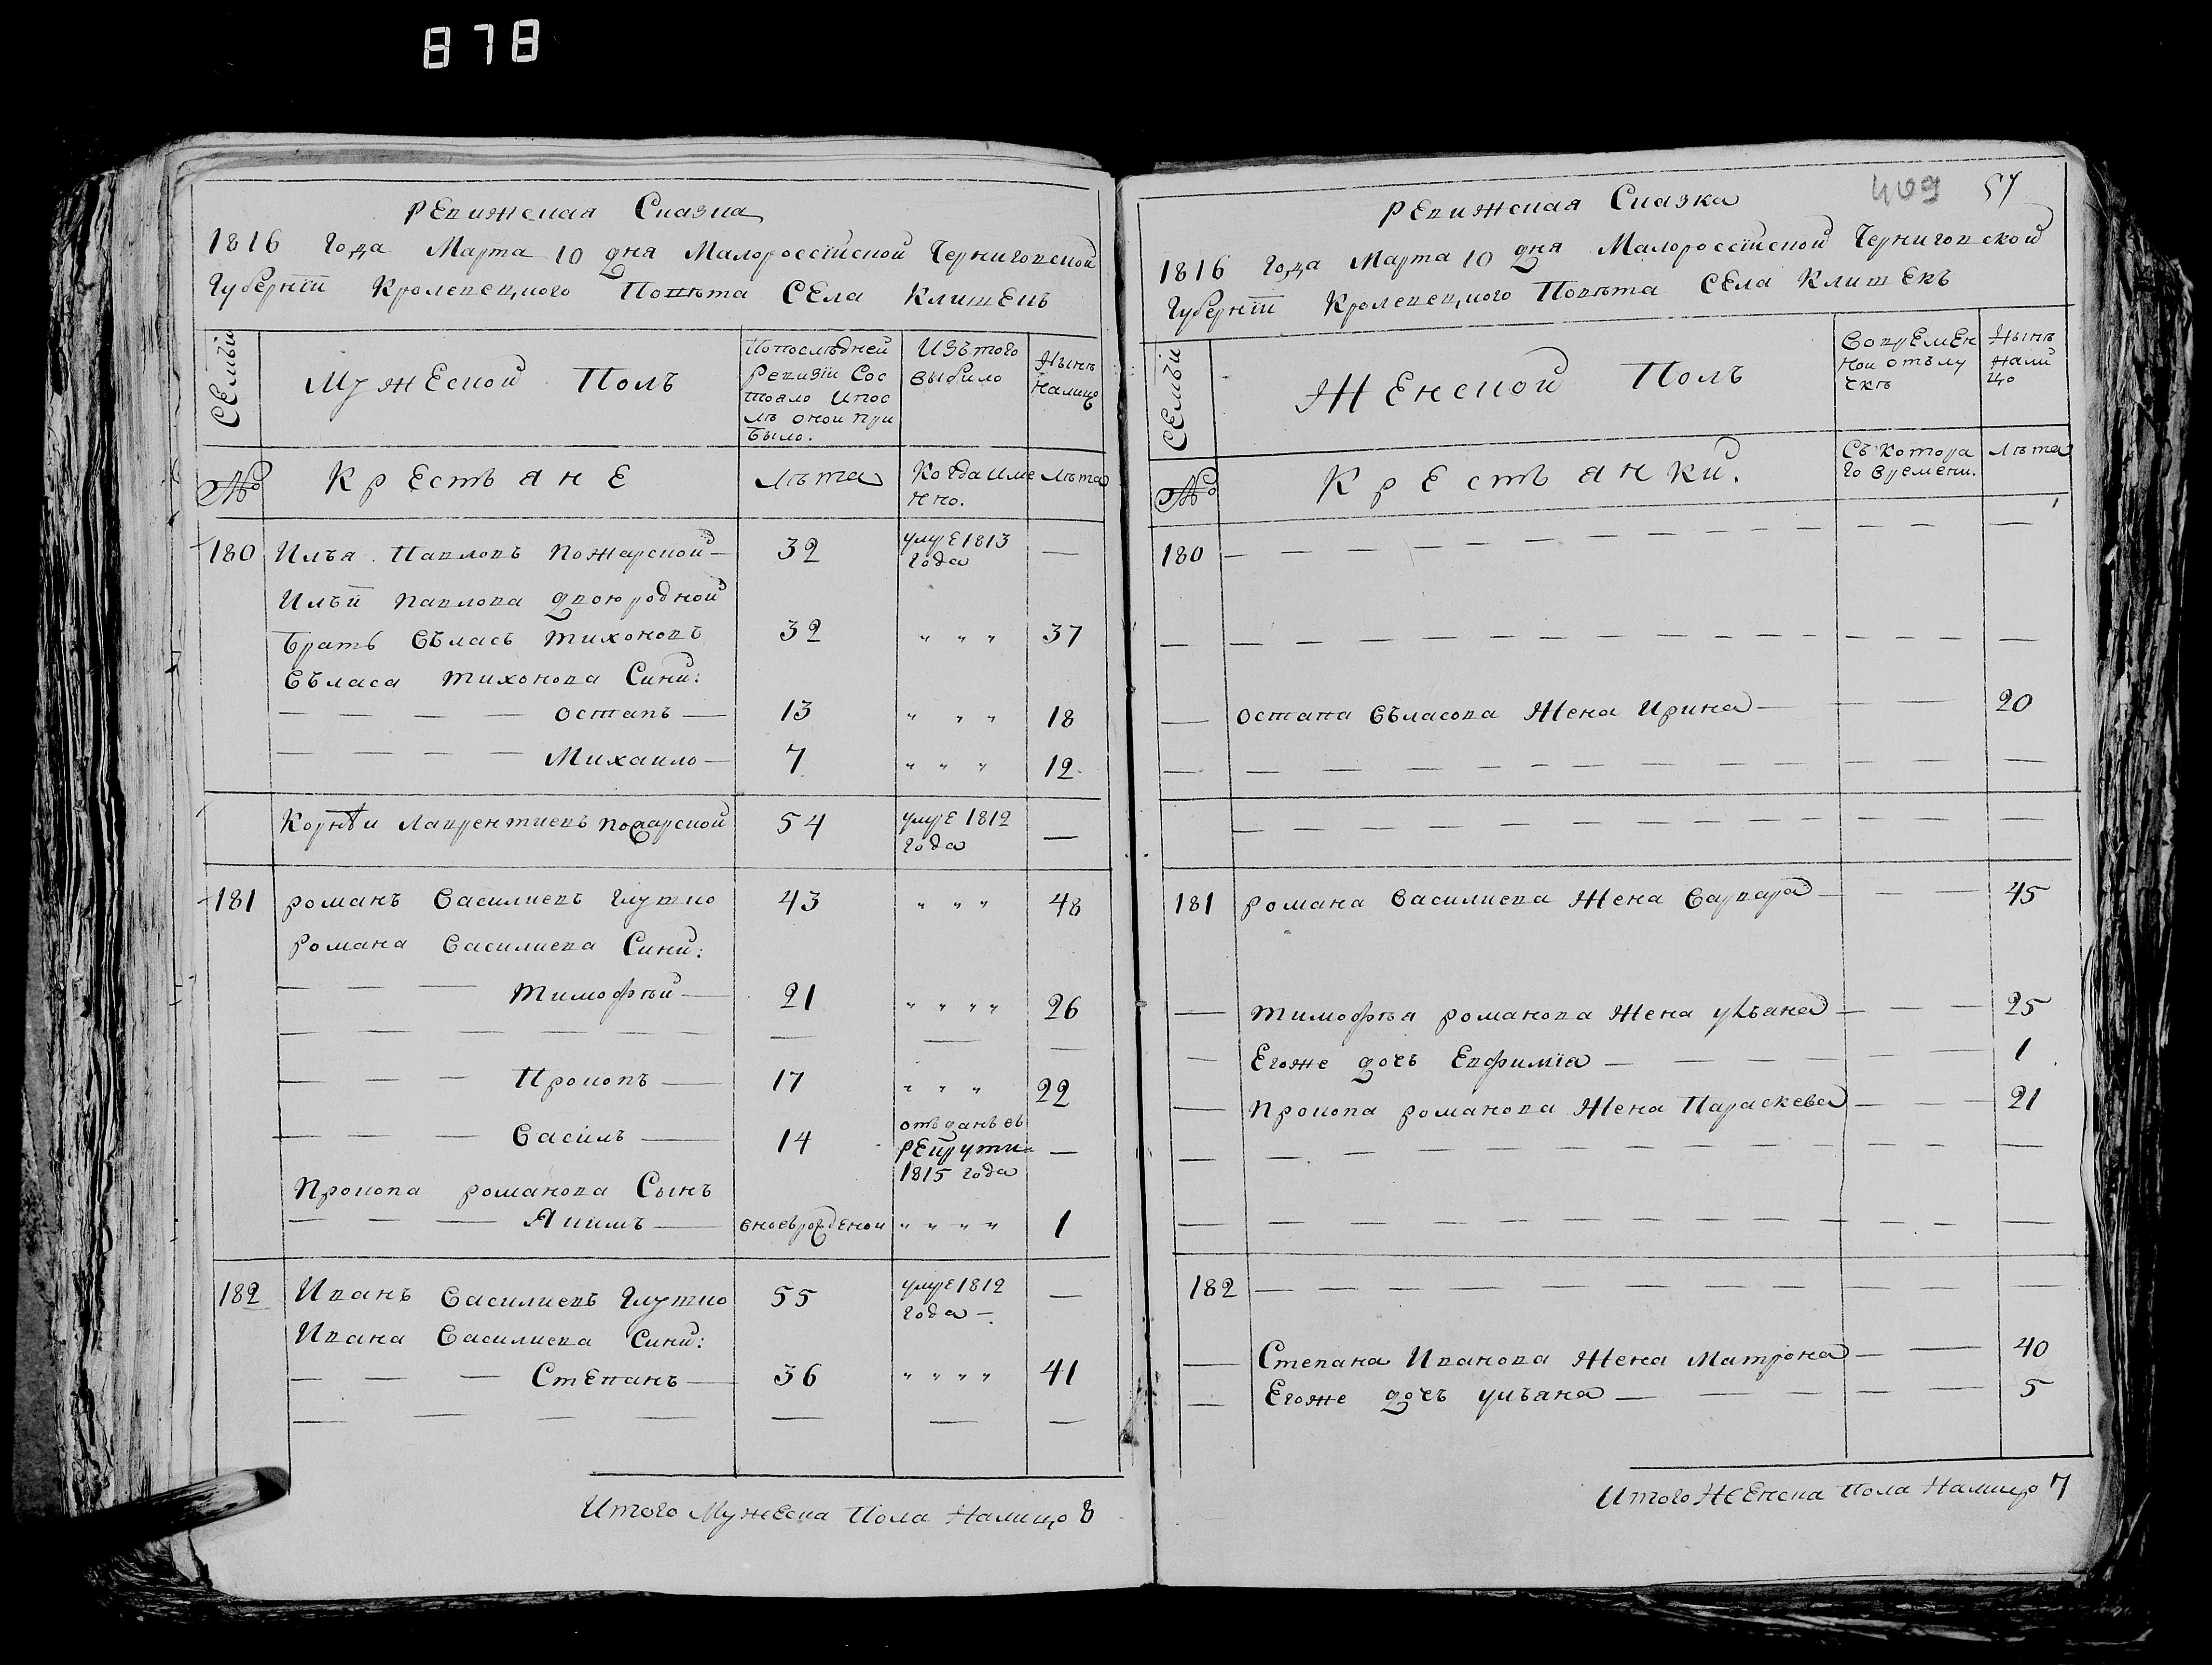 878
Ревижская Сказка
1816 Года Марта 10 дня Малороссїйской Черниговской
Губернїи Кролевецкого Повѣта Села Клишекъ
Семьи
Мужеской Полъ
Попослѣдней
Ревизїи Сос
тояло ипос
лѣ оной при
было.
Изътого
выбило
Нынѣ
налицо
№
Крестьяне
Лѣта
Когда име
нно.
Лѣта
180 Илья Павловъ Пожарской — 32 умре 1813 —
года
Ильи Павлова двоюродной
братъ Съласъ Тихоновъ 32 " " " 37
Съласа Тихонова Сини:
— — — — Остапъ — 13 " " " 18
— — — — Михаило — 7 " " " 12
Корнѣи Лаврентиевъ Пожарской 54 умре 1812 —
года
181 Романъ Василиевъ Глушко 43 " " " 48
Романа Василиева Сини:
— — — Тимофѣй — 21 " " " " 26
— — — Прокопъ — 17 " " " 22
— — — Василъ — 14 отъданъ въ —
рекрути
1815 года
Прокопа Романова Сынъ
— — — Якимъ — вноврожденои " " " " 1
182 Иванъ Василиевъ Глушко 55 умре 1812 —
года —
Ивана Василиева Сини:
— — — Степанъ — 36 " " " " 41
Итого Мужеска Пола Налицо 8
409 57
Ревижская Сказка
1816 Года Марта 10 дня Малороссїйской Черниговской
Губернїи Кролевецкого Повѣта Села Клишекъ
Семьи
Женской Полъ
Вовремен
ной отълу
чкѣ
Нынѣ
нали
цо
№
Крестьянки.
Съ котора
го времени.
Лѣта
180 — — —
— Остапа Съласова Жена Ирина — — — 20
181 Романа Василиева Жена Варвара — — — 45
— Тимофѣя Романова Жена Ульана — — — 25
— Егоже дочь Евфимїа — — — 1
— Прокопа Романова Жена Параскева — — — 21
182 — — —
— Степана Иванова Жена Матрона — — 40
— Егоже дочъ Ульяна — — — 5
Итого Женска Пола Налицо 7